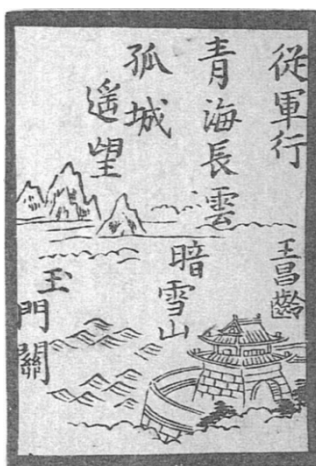 從軍行
王昌齡
青海長雲
暗雪山
孤城
遥望
玉門關